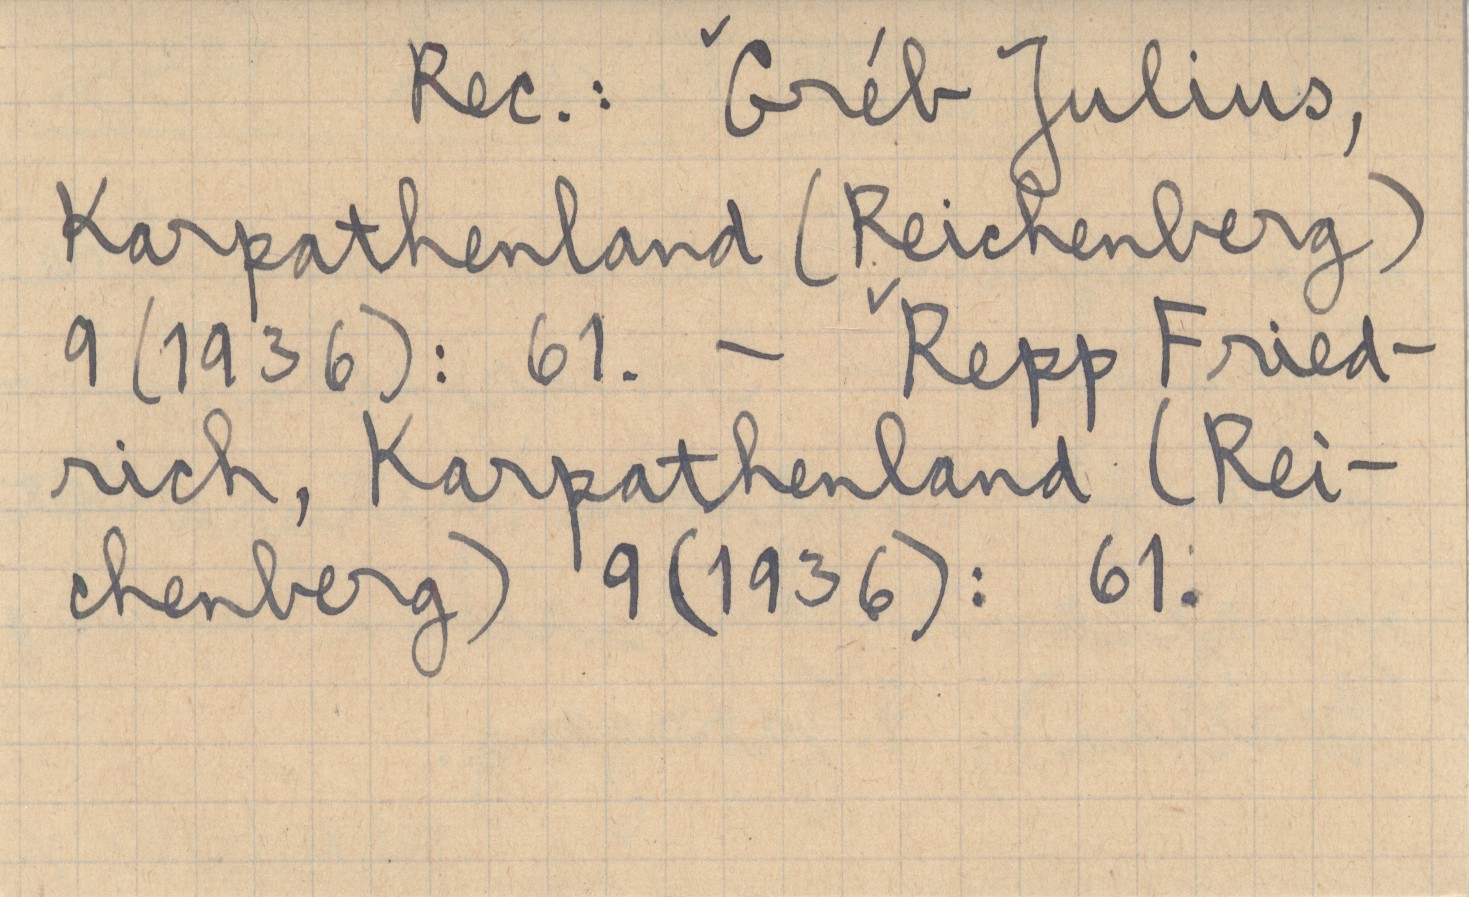 Rec.: ˇGréb Julius,
Karpathenland (Reichenberg)
9(1936): 61. — ˇRepp Fried-
rich, Karpathenland (Rei-
chenberg) 9(1936): 61.